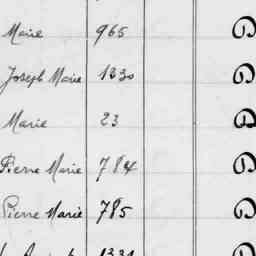 Marie 965 D
Joseph Marie 1330 D
Marie 23 D
Pierre Marie 784 D
Pierre Marie 785 D
1331 D